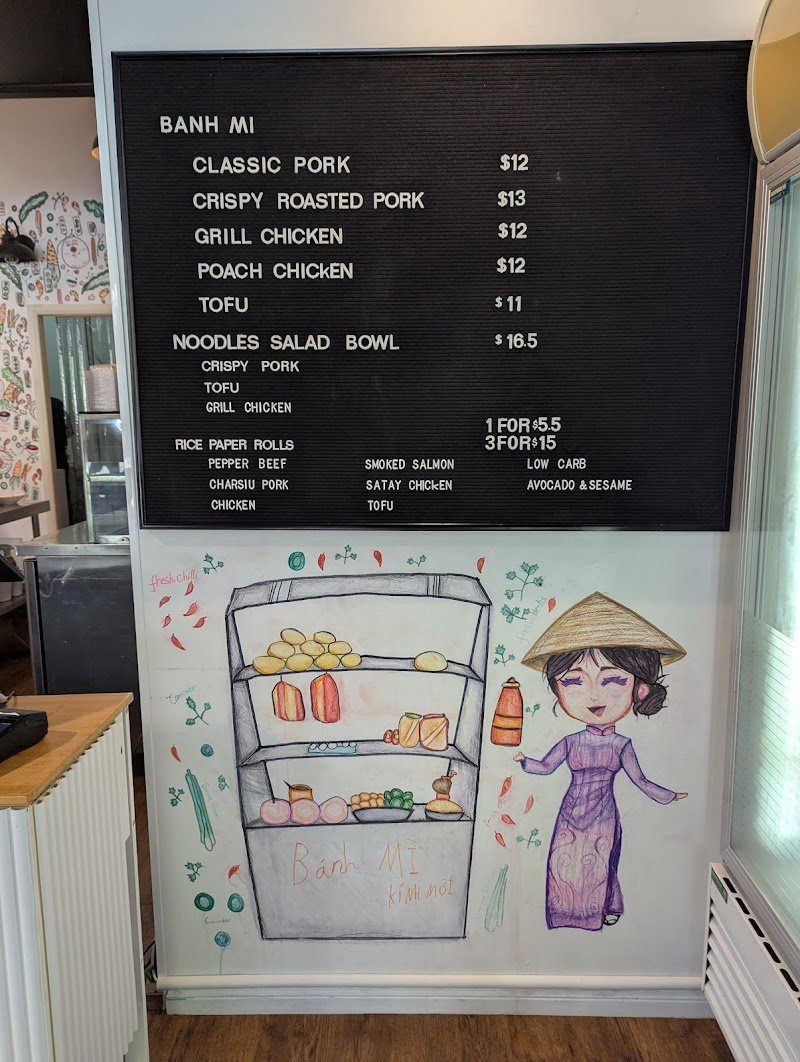 BANH MI
CLASSIC PORK $12
CRISPY ROASTED PORK $13
GRILL CHICKEN $12
POACH CHICkEN $12
TOFU $11
NOODLES SALAD BOWL $16.5
CRISPY PORK
TOFU
GRILL CHICKEN
1 FOR $5.5
RICE PAPER ROLLS 3 FOR $15
PEPPER BEEF SMOKED SALMON LOW CARB
CHARSIU PORK SATAY CHICkEN AVOCADO & SESAME
CHICKEN TOFU
fresh chilli
Bánh Mì
KÍNH MỜI